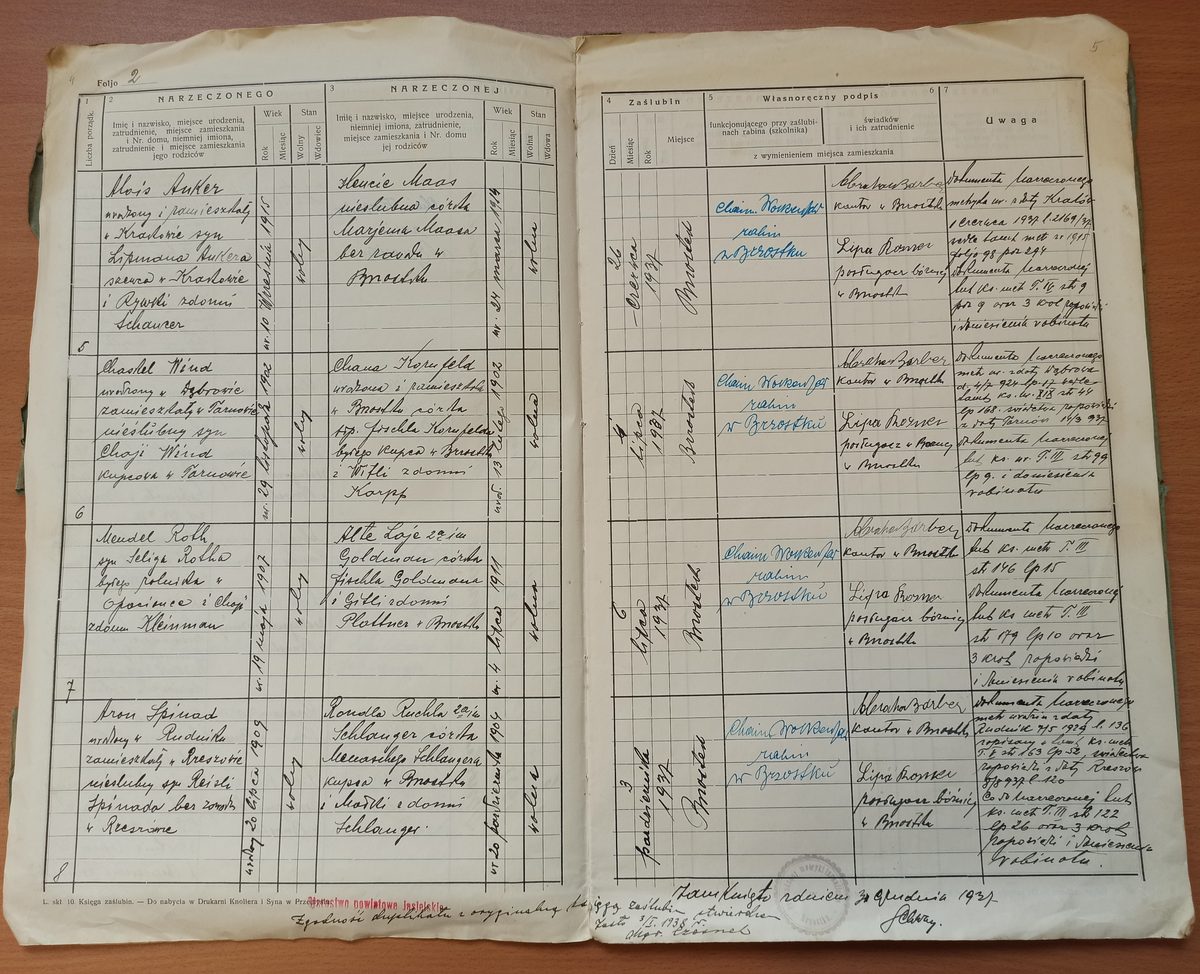 4
Foljo 2
1
Liczba porządk.
2
NARZECZONEGO
Imię i nazwisko, miejsce urodzenia,
zatrudnienie, miejsce zamieszkania
i Nr. domu, niemniej imiona,
zatrudnienie i miejsce zamieszkania
jego rodziców
Wiek
Rok
Miesiąc
Stan
Wolny
Wdowiec
3
NARZECZONEJ
Imię i nazwisko, miejsce urodzenia,
niemniej imiona, zatrudnienie,
miejsce zamieszkania i Nr. domu
jej rodziców
Wiek
Rok
Miesiąc
Stan
Wolna
Wdowa
5
Alois Anker
urodzony i zamieszkały
w Krakowie syn
Lipmana Ankera
szewca w Krakowie
i Rywki z domu
Schanzer
ur. 10 Wrzesień 1915
wolny
Hencie Maas
nieślubna córka
Marjema Maasa
bez zawodu w
Brzostku
ur. 24 marca 1914
wolna
6
Chaskel Wind
urodzony w Dąbrowie
zamieszkały w Tarnowie
nieślubny syn
Chaji Wind
kupcowa w Tarnowie
ur. 29 listopada 1902
wolny
Chana Kornfeld
urodzona i zamieszkała
w Brzostku córka
śp. Fischla Kornfelda
byłego kupca w Brzostku
i Witli z domu
Korpp
urod. 13 lutego 1902
wolna
7
Mendel Roth
syn Seliga Rotha
byłego rolnika w
Oparionce i Chaji
z domu Kleinman
ur. 19 maja 1907
wolny
Alte Laje 2ga im
Goldman córka
Fischla Goldmana
i Gitli z domu
Plattner w Brzostku
ur. 4 lipca 1911
wolna
8
Aron Spinad
urodzony w Rudniku
zamieszkały w Rzeszowie
nieślubny syn Reisli
Spinada bez zawodu
w Rzeszowie
urodzony 20 lipca 1909
wolny
Rondla Ruchla 2ga im
Schlanger córka
Menaschego Schlangera
kupca w Brzostku
i Małki z domu
Schlanger.
ur 20 października 1904
wolna
L. skł 10. Księga zaślubin. — Do nabycia w Drukarni Knollera i Syna w
Starostwo powiatowe Jasielskie
Zgodność duplikatu z oryginalną księgą zaślubin stwierdza
Jasło 3/I. 1938
Mgr.
5
4
Zaślubin
Dzień
Miesiąc
Rok
Miejsce
5
Własnoręczny podpis
6
funkcjonującego przy zaślubinach rabina (szkolnika)
świadków
i ich zatrudnienie
z wymienieniem miejsca zamieszkania
7
Uwaga
26
Czerwca
1937
Brzostek
Chaim
rabin
w Brzostku
Abraham Barber
kantor w Brzostku
Lipa Rosner
posługacz bóżnicy
w Brzostku
Dokumenta narzeczonego
metryka ur. z daty Kraków
czerwca 1937 l. 2169/37
1915
foljo 98 poz 294
Dokumenta narzeczonej
tut. ks. metr T. III str 9
poz 9 oraz 3 krot zapowiedzi
i doniesienia rabinatu
4
lipca
1937
Brzostek
Chaim
rabin
w Brzostku
Abraham Barber
kantor w Brzostku
Lipa Rosner
posługacz w Bożnicy
w Brzostku
Dokumenta narzeczonego
metr. ur. z daty Dąbrowa
d. 4/7 924 lp. 17
tamt. ks. ur. XIX str 44
lp 168. świadectwo zapowiedzi
z daty Tarnów 14/3 937
Dokumenta narzeczonej
tut. ks. ur. T. III str 99
lp 9. i doniesienia
rabinatu
6
lipca
1937
Brzostek
Chaim
rabin
w Brzostku
Abraham Barber
kantor w Brzostku
Lipa Rosner
posługacz bóżnicy
w Brzostku
Dokumenta narzeczonego
tut ks. metr T. III
str 146 lp 15
Dokumenta narzeczonej
tut ks. metr T. III
str 179 lp 10 oraz
3 krot zapowiedzi
i doniesienia rabinatu
3
października
1937
Brzostek
Chaim
rabin
w Brzostku
Abraham Barber
kantor w Brzostku
Lipa Rosner
posługacz bóżnicy
w Brzostku
Dokumenta narzeczonego
metr urodzin z daty
Rudnik 7/5 1929 l. 136
zapisany w ks. metr
T. V str 163 lp 52, świadectwo
zapowiedzi z daty Rzeszów
937 l. 120
Co do narzeczonej tut
ks. metr T. III str 122
lp 26 oraz 3 krot
zapowiedzi i doniesienia
rabinatu.
Zamknięto z dniem 31 grudnia 1937